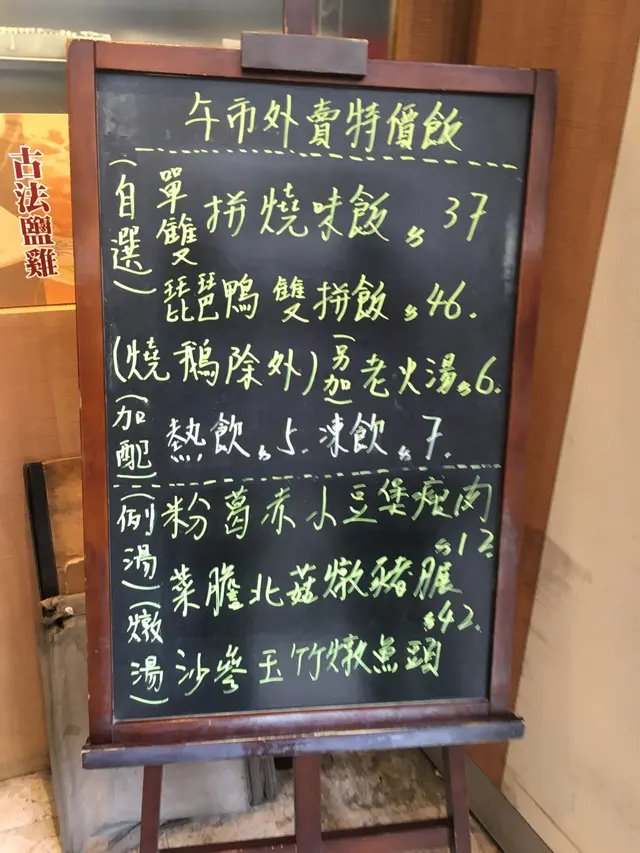 午市外賣特價飯
(自選) 單雙拼燒味飯 $37
琵琶鴨雙拼飯 $46.
(燒鵝除外) (另加) 老火湯 $6.
(加配) 熱飲 $5. 凍飲 $7.
(例湯) 粉葛赤小豆煲瘦肉 $12
(燉湯) 菜膽北菇燉豬𦟌 $42.
沙參玉竹燉魚頭
古法鹽雞